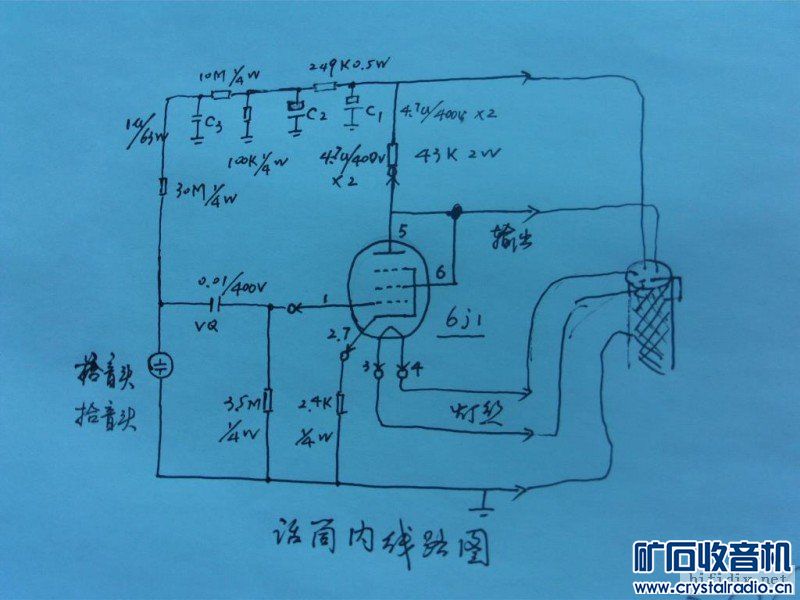 10M 1/4W
249K 0.5W
C3
C2
C1
4.7u/400v ×2
100K 1/4W
4.7u/400v
×2
43K 2W
30M 1/4W
5
输出
6
0.01/400V
1
VQ
6j1
2.7
3
4
拾音头
3.5M
1/4W
2.4K
1/4W
灯丝
话筒内线路图
矿石收音机
hifidiy.net
www.crystalradio.cn